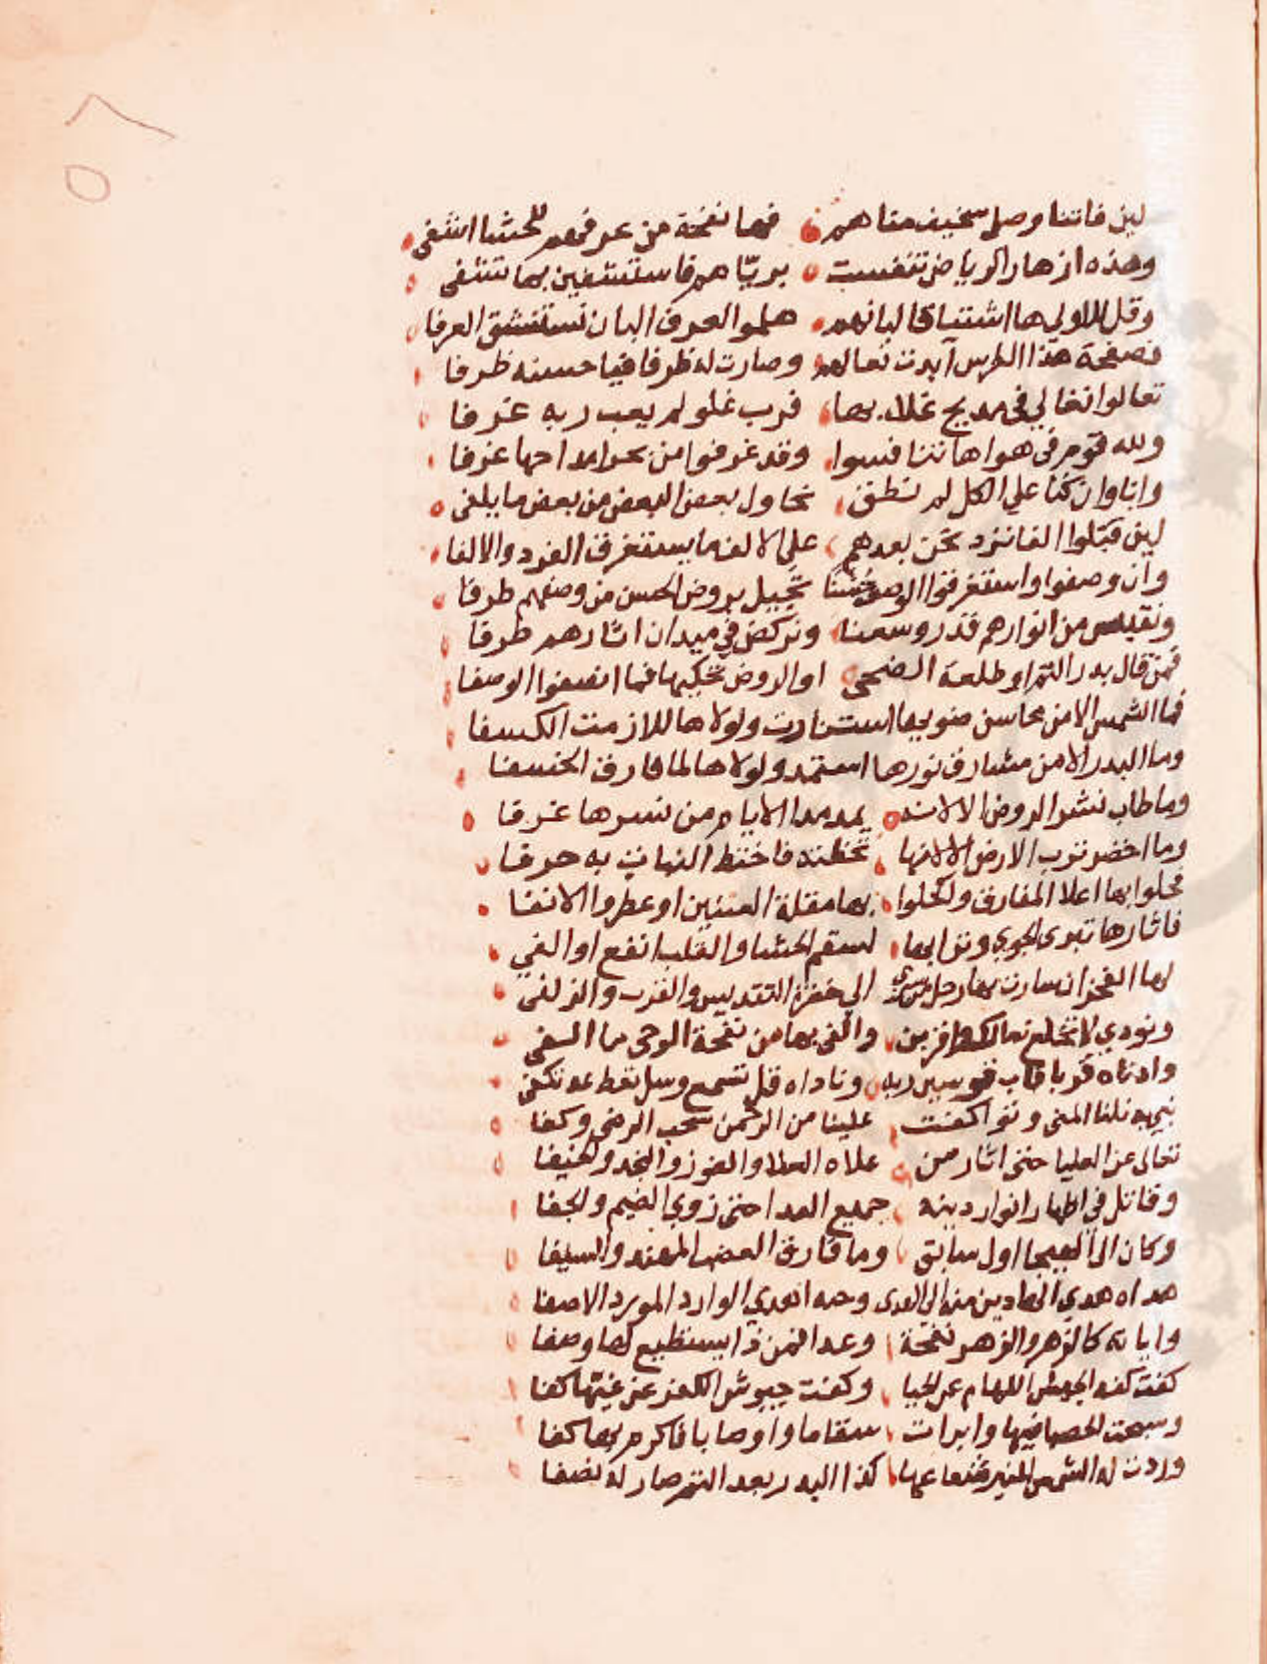 ٥٨
لين فاتنا وصل بخيف مناهم فها نفحة من عرفهم للحشا اشفى
وهذه ازهار الرياض تنفست بريّاهم فاستشفين بها تشفى
وقل للاولى هااشتياقا لبانهم هلموا لعرف البان نستنشق العرفا
فصفحة هذا الطرس ابدت نعالهم وصارت له ظرفا فيا حسنه ظرفا
تعالوا نغالي في مديح علاء بها فرب غلو لم يعب ربه عرفا
ولله قوم في هواها تنافسوا وقد غرفوا من بحر امداحها غرفا
وانا وان كنا علي الكل لم نطق نحاول بعض البعض من بعض ما يلفى
لين قبلوا الفا نزد نحن بعدهم علي الالف ما يستغرق الفرد والالفا
وان وصفوا واستغرقوا الوصف حسنا نجيل بروض الحسن من وصفهم طرفا
ونقبس من انوارهم قدر وسعنا ونركض في ميدان اثارهم طرفا
فمن قال بدر التم او طلعة الضحى او الروض تحكيها فما انصفوا الوصفا
فما الشمس الا من محاسن ضويها استنارت ولولاها للازمت الكسفا
وما البدر الا من مشارق نورها استمد ولولاها لما فارق الخسفا
وما طاب نشر الروض الا لانه يمد مدا الايام من نشرها عرفا
وما اخضر ترب الارض الا لانها تخطته فاختط النبات به حرفا
فحلوا بها اعلا المفارق واكحلوا بها مقلة العينين او عطروا الانفا
فاثارها تبرى الجوى وترابها لسقم الحشا والقلب انفع او الفي
لها الفخر ان سارت بها رجل من سرى الي حضرة التقديس والقرب والزلفى
ونودي لا تخلع نعالك وافزين والقى بها من نفحة الوحى ما القى
وادناه قربا قاب قوسين ربه وناداه قل تسمع وسل تعط عد تكفى
نبي به نلنا المنى وتواكفت علينا من الرحمن سحب الرضى وكفا
تعالى عن العليا حتى اثار من علاه العلا والغوز والنجد والخيفا
وقاتل في اظهار انوار دينه جميع العدا حتى زوي الضيم والجفا
وكان الى الهيجا اول سابق وما فارق العضب المهند والسيفا
هداه هدي الهادين منه الى الهدى وحد الهدي الوارد المورد الاصفا
واياته كالزهر والزهر نفحة وعدا فمن ذا يستطيع لها وصفا
كفت كفه الجيش اللهام عن الحيا وكفت جيوش الكفر عن غيها كفا
وسبحت الحصبا فيها وابرات سقاما واوصابا فاكرم بها كفا
وردت له الشمس المنير شعاعها كذا البدر بعد التم صار له نصفا